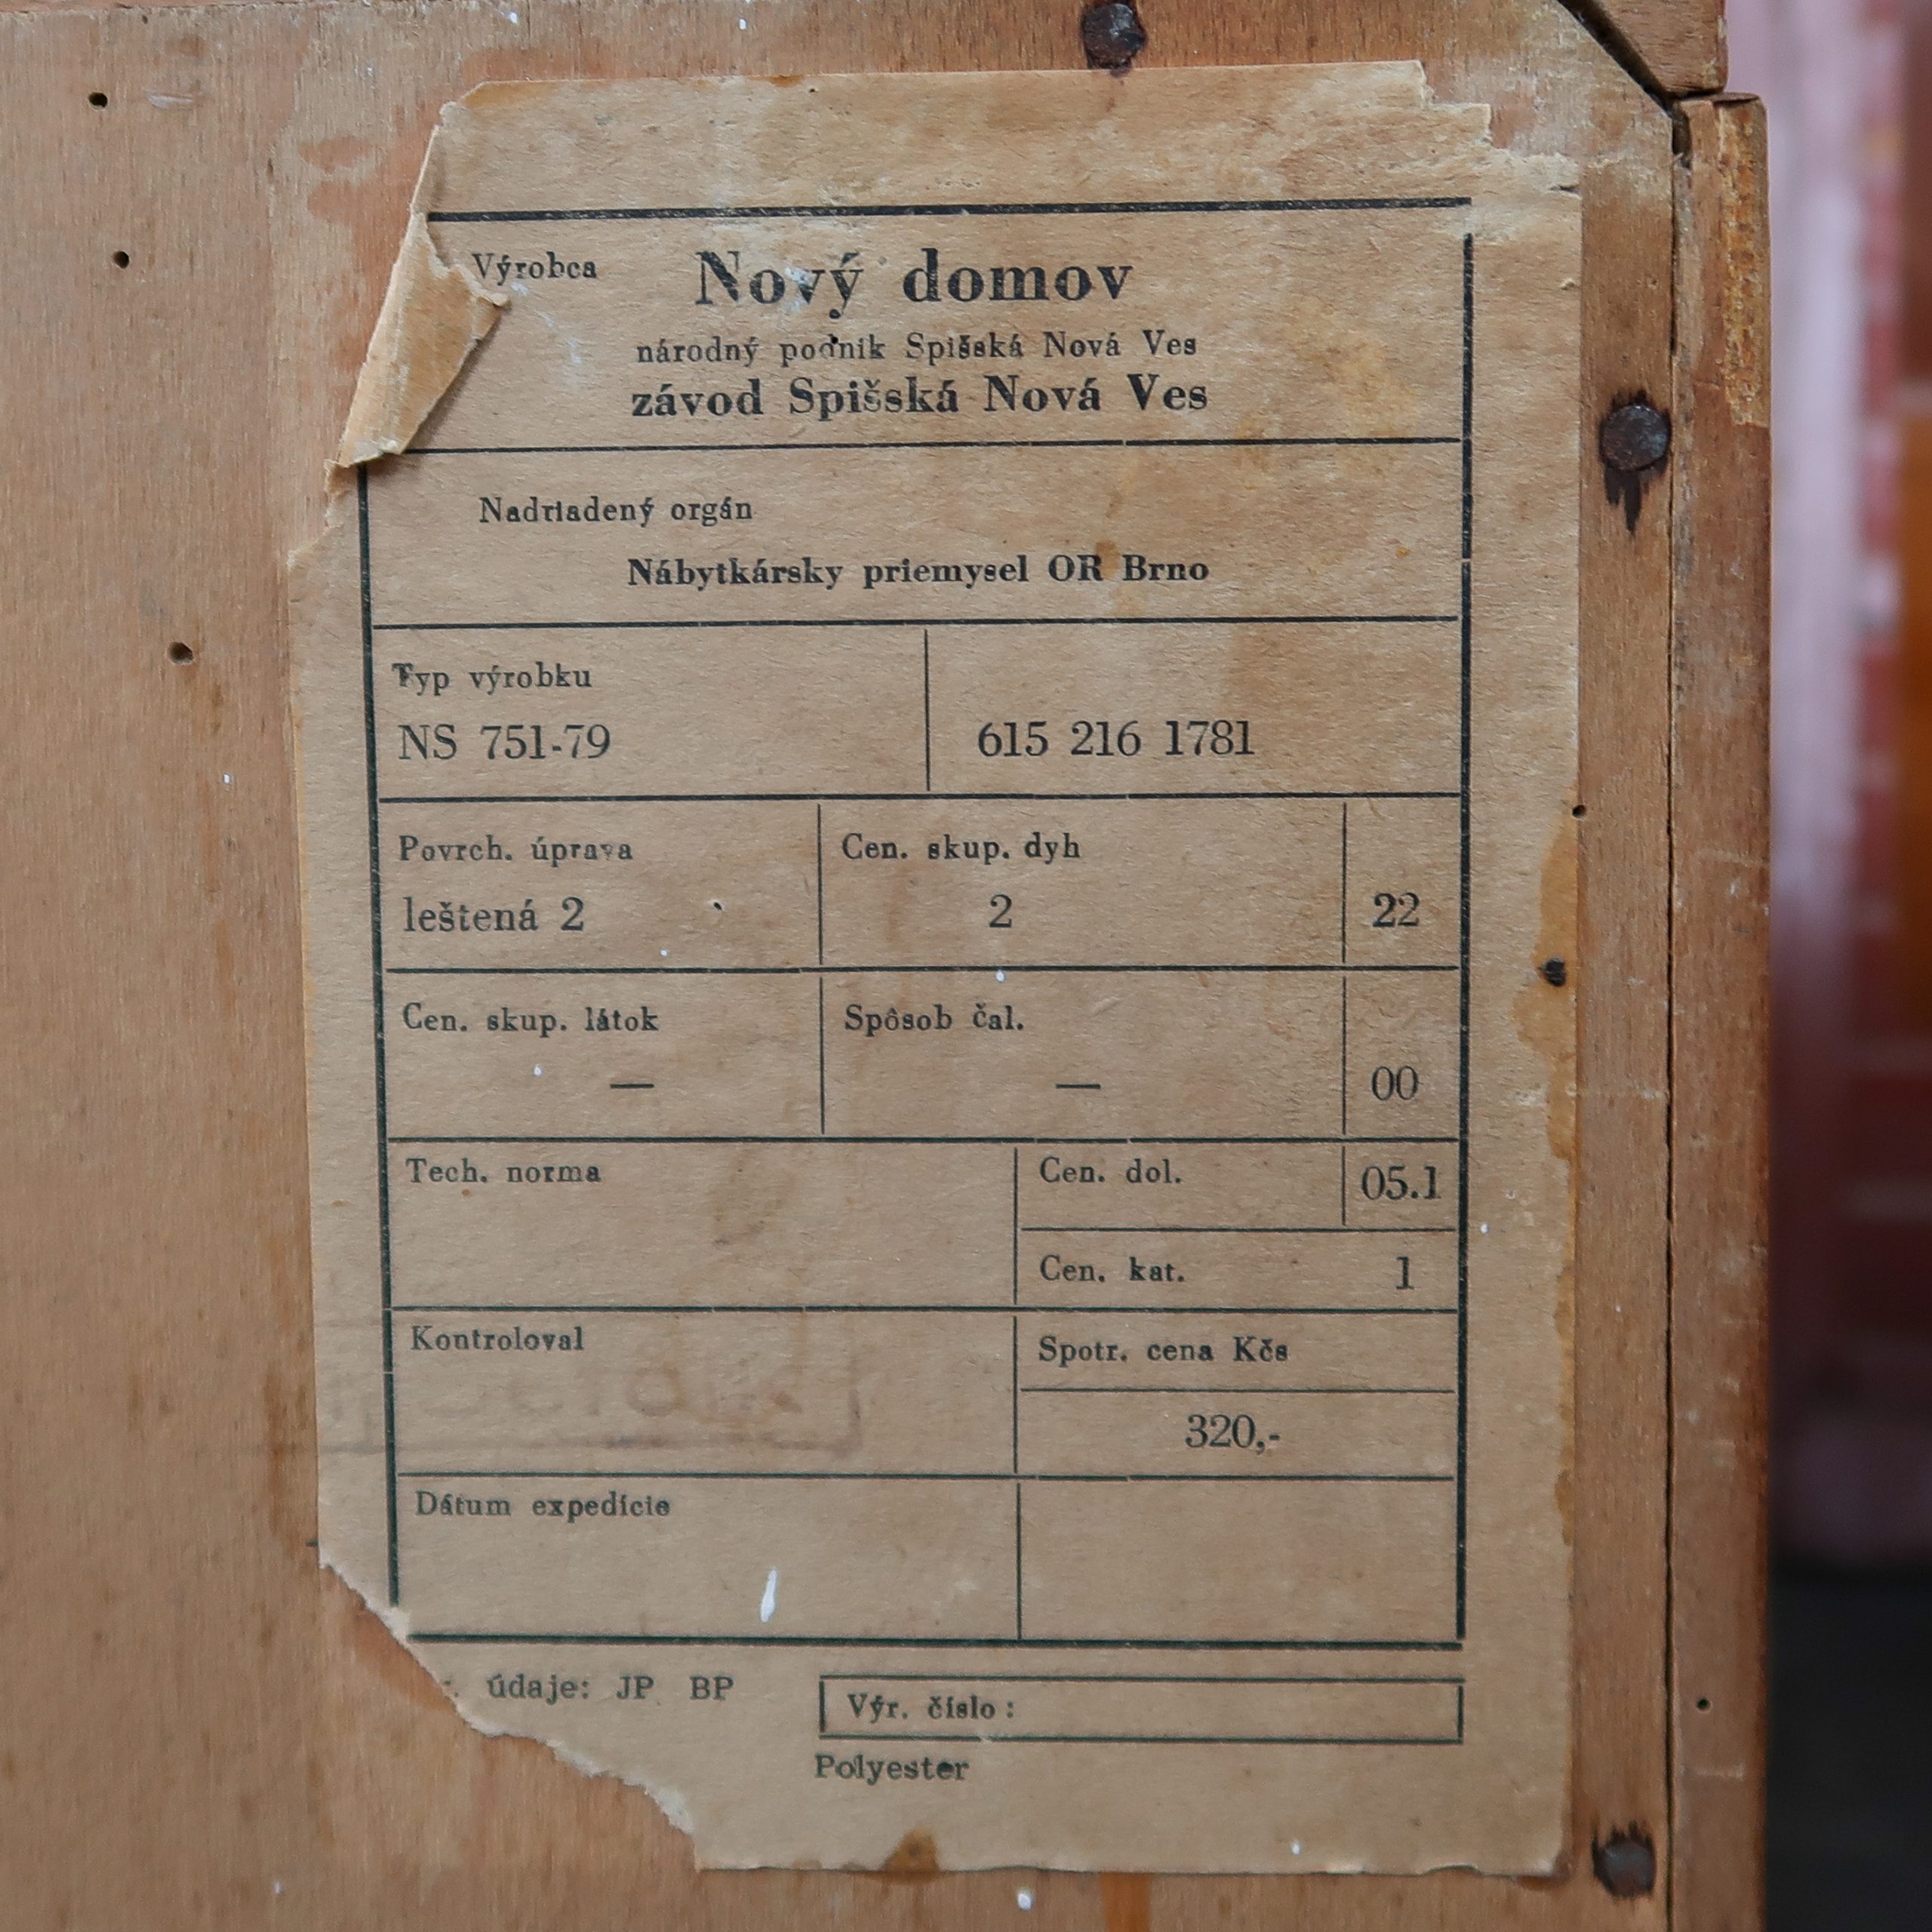 Výrobca
Nový domov
národný podnik Spišská Nová Ves
závod Spišská Nová Ves
Nadriadený orgán
Nábytkársky priemysel OR Brno
Typ výrobku
NS 751-79
615 216 1781
Povrch. úprava
leštená 2
Cen. skup. dyh
2
22
Cen. skup. látok
—
Spôsob čal.
—
00
Tech. norma
Cen. dol.
05.1
Cen. kat.
1
Kontroloval
Spotr. cena Kčs
320,-
Dátum expedície
údaje: JP BP
Výr. číslo:
Polyester